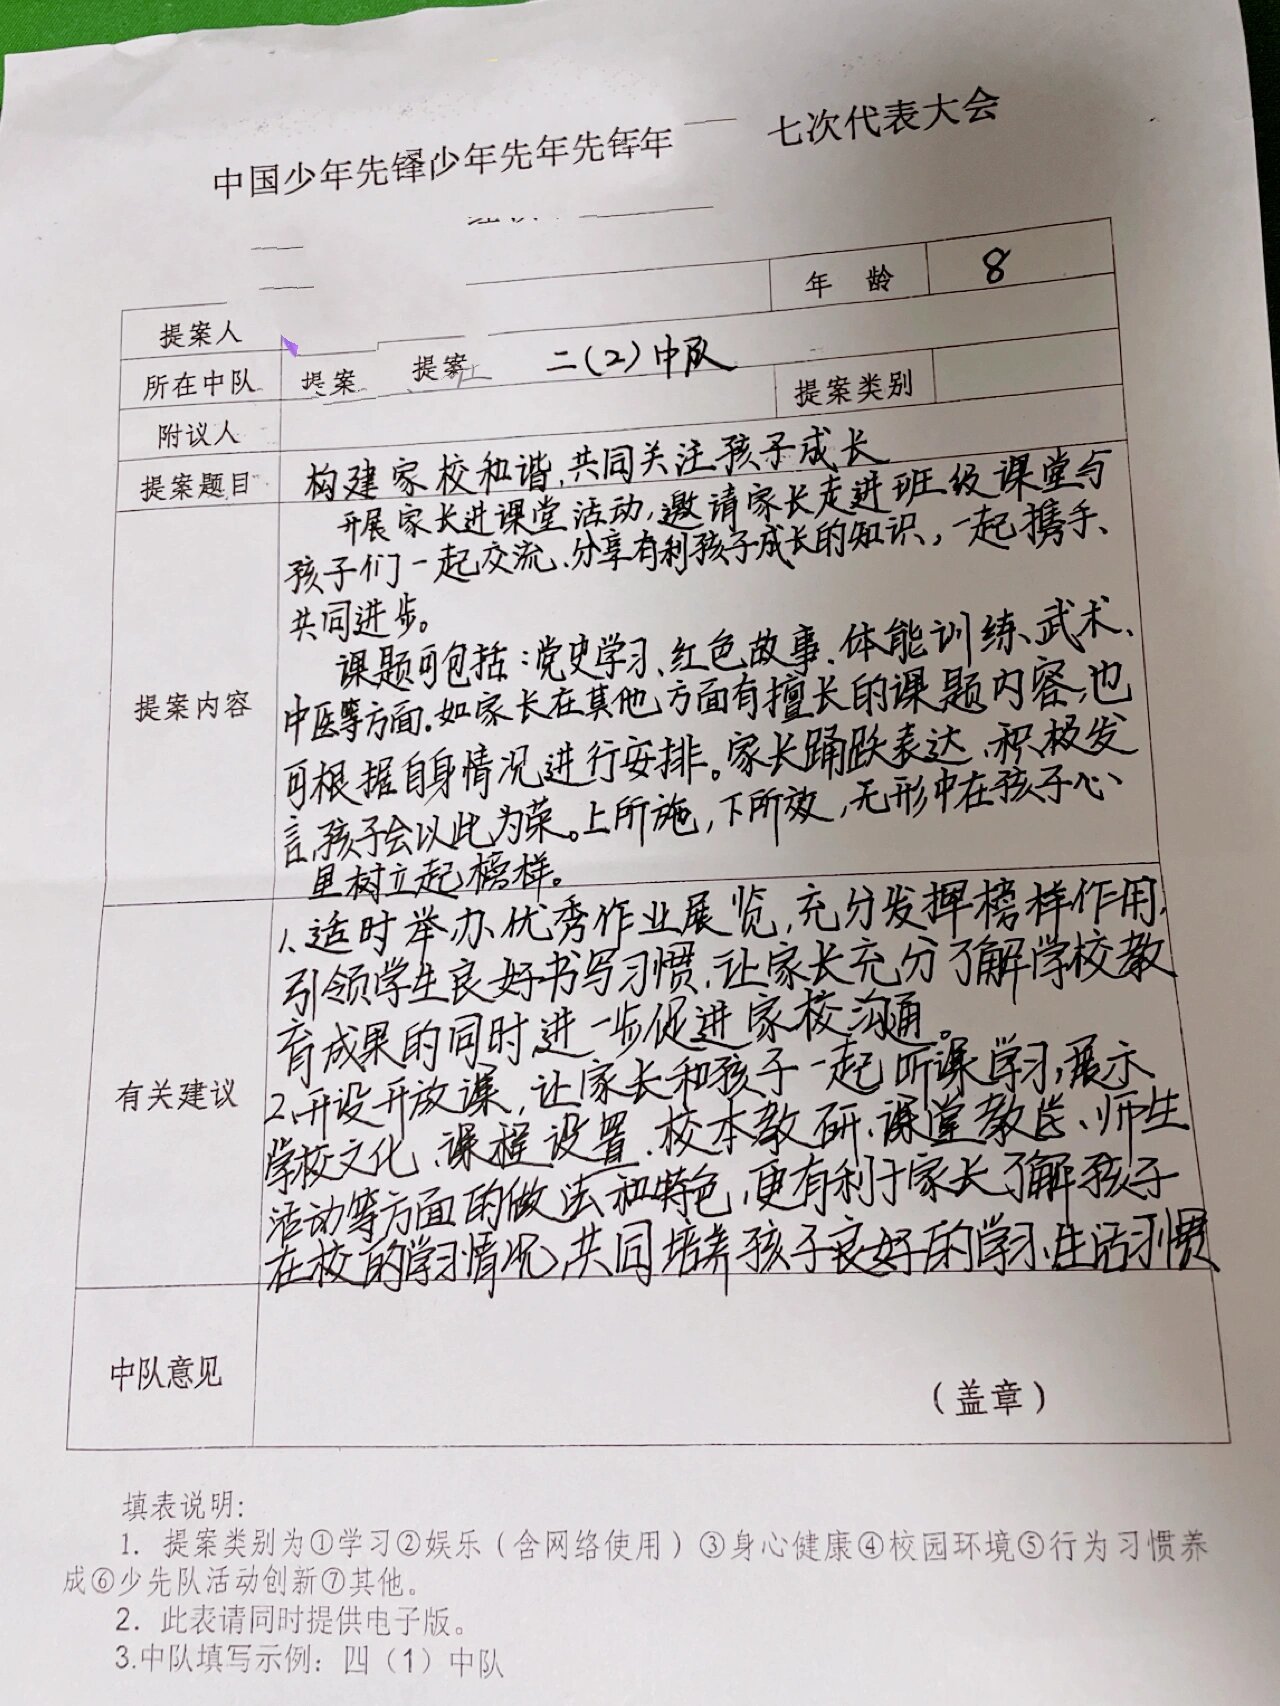 中国少年先锋少年先年先锋年 七次代表大会
年 龄 8
提案人
所在中队 提案 提案 二(2)中队
提案类别
附议人
提案题目 构建家校和谐,共同关注孩子成长
开展家长进课堂活动,邀请家长走进班级课堂与
孩子们一起交流、分享有利孩子成长的知识,一起携手、
共同进步。
课题可包括:党史学习、红色故事、体能训练、武术、
提案内容
中医等方面.如家长在其他方面有擅长的课题内容,也
可根据自身情况进行安排。家长踊跃表达、积极发
言,孩子会以此为荣。上所施,下所效,无形中在孩子心
里树立起榜样。
1、适时举办优秀作业展览,充分发挥榜样作用,
引领学生良好书写习惯,让家长充分了解学校教
育成果的同时,进一步促进家校沟通。
有关建议
2、开设开放课,让家长和孩子一起听课学习,展示
学校文化、课程设置、校本教研、课堂教学、师生
活动等方面的做法和特色,更有利于家长了解孩子
在校的学习情况,共同培养孩子良好的学习、生活习惯
中队意见
(盖章)
填表说明:
1. 提案类别为①学习②娱乐(含网络使用)③身心健康④校园环境⑤行为习惯养
成⑥少先队活动创新⑦其他。
2. 此表请同时提供电子版。
3.中队填写示例:四(1)中队